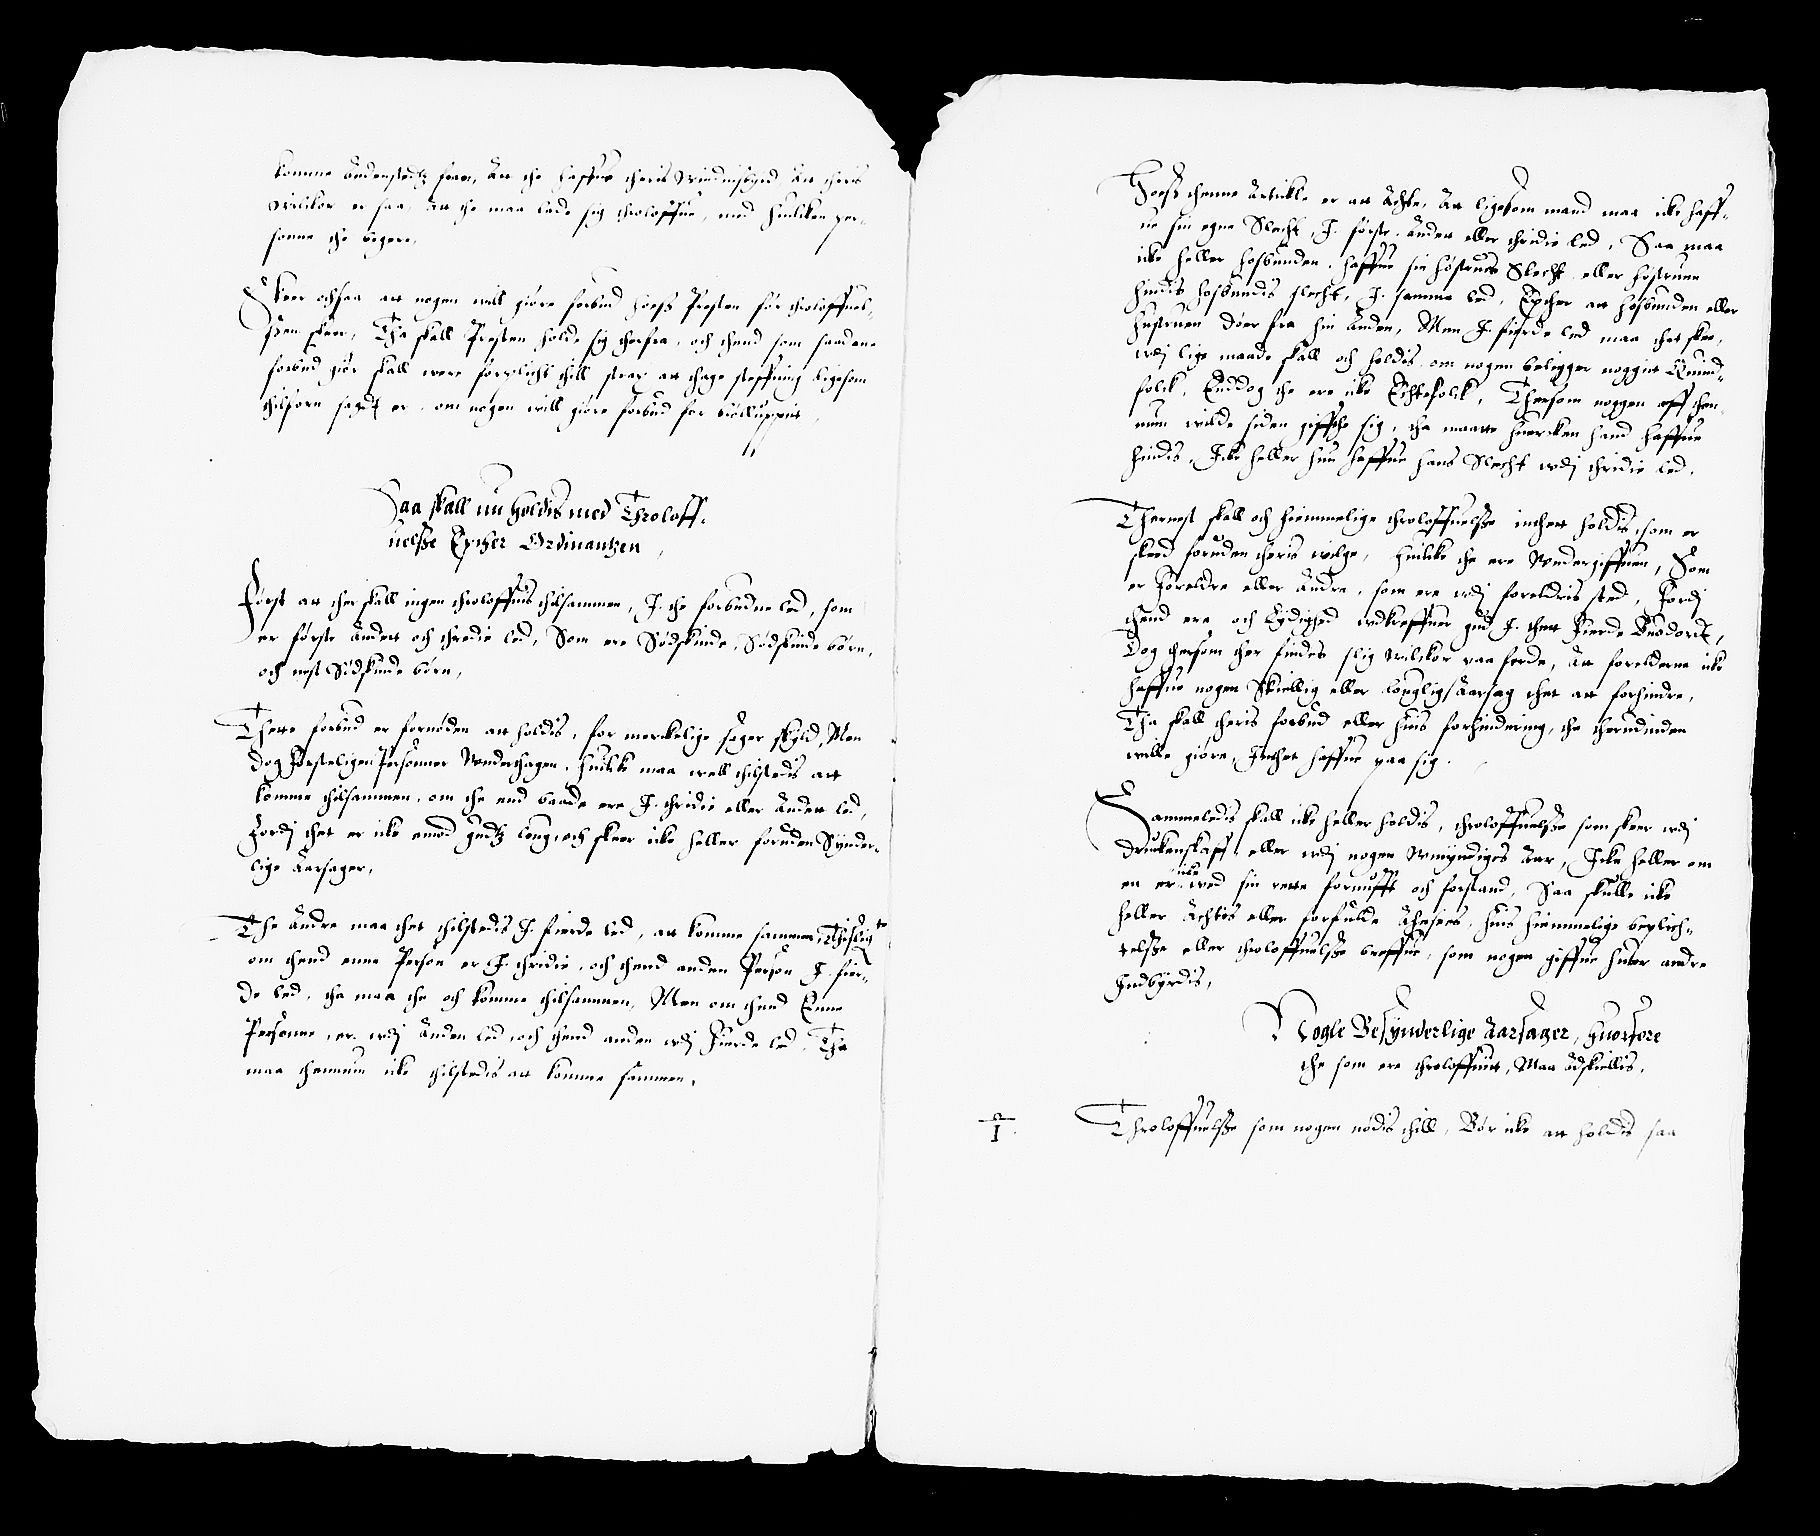 komme andenstedtz fran, Att the haffue theris Windnisbyrd, Att theris
Wilckor er saa, att the maa lade sig throloffue, med huilcken per-
sonne the begere,
Skeer ochsaa att nogen will giøre forbud hoess Presten før throloffuel-
ssen skeer, Tha skall Presten holde sig therfra, och thend som saadane
forbud giør skall were forplicht thill strax att thage steffning ligesom
thilforn sagdt er, om nogen will giøre forbud for brølluppit,
Saa skall nu holdis med Throloff-
uelsse Epther Ordinantzen,
Først att ther skall ingen throloffuis thilsammen, I the forbudne led, som
er første Andett och thredie led, Som ere Sødskinde, Sødskinde børn,
och nest Sødskinde børn,
Thette forbud er fornøden att holdis, for merckelige sager skyld, Men
dog førsteligen Personner Vnderthagen, huilcke maa well thilstedis att
komme thilsammen, om the end baade ere I thridie eller Andett led,
Fordj thet er icke emod gudtz loug, och skeer icke heller foruden Synder-
lige Aarsager,
The Andre maa thet thilstedis I fierde led, att komme sammen, Thesligste
om thend enne Person er I thridie, och thend anden Person I fier-
de led, tha maa the och komme thilsammen, Men om thend Enne
Personne, er wdj Anden led, och thend anden wdj Fierde led, Tha
maa thennum icke thilstedis att komme sammen,
Hoess thenne Artickle er att Achte, Att ligesom mand maa icke haff-
ue sin egne Slecht, I første, Andett eller thridie led, Saa maa
icke heller hosbunden, haffue sin høstrues Slecht, eller høstruen
hindis hosbundis slecht, I samme led, Epther att hosbunden eller
hustruen døer fra hin Anden, Men I fierde led maa thet skee,
wdj lige maade skall och holdis, om nogen belegger noggit Quind-
folck, Enddog the ere icke Echtefolck, Thersom noggen aff then-
num wilde siden giffthe sig, tha maatte huercken hand haffue
hindis, Icke heller hun haffue hans Slecht wdj thridie led,
Thernest skall och hiemmelige throloffuelsse inthett holdis, som er
skeed foruden theris wilge, huilcke the ere Vndergiffuen, Som
er Foreldre eller Andre, som ere wdj foreldris sted, Fordj
thend ere och Lydighed wdkreffuer gud I thett Fierde Budord,
Dog thersom ther findes slig wilckor paa ferde, Att forelderne icke
haffue nogen skiellig eller louglig Aarsag thet att forhindre,
Tha skall theris forbud eller huis forhindring, the therudinden
wille giøre, Inthet haffue paa sig.
Sammeledis skall icke heller holdis, throloffuelsse som skeer wdj
Druckenskaff, eller wdj nogen Vmyndiges Aar, Icke heller om
en er icke wed sin rette fornufft och forstand, Saa skulle icke
heller Achtes eller forfulde Ahesees, huis hiemmelige beplich-
telsse eller throloffuelsse breffue, som nogen giffue huer andre
Indbyrdis,
Nogle Besynderlige Aarsager, huorfore
the som ere throloffuet, Maa Adskillis.
1.
Throloffuelsse som nogen nødis thill, Bør icke att holdis saa